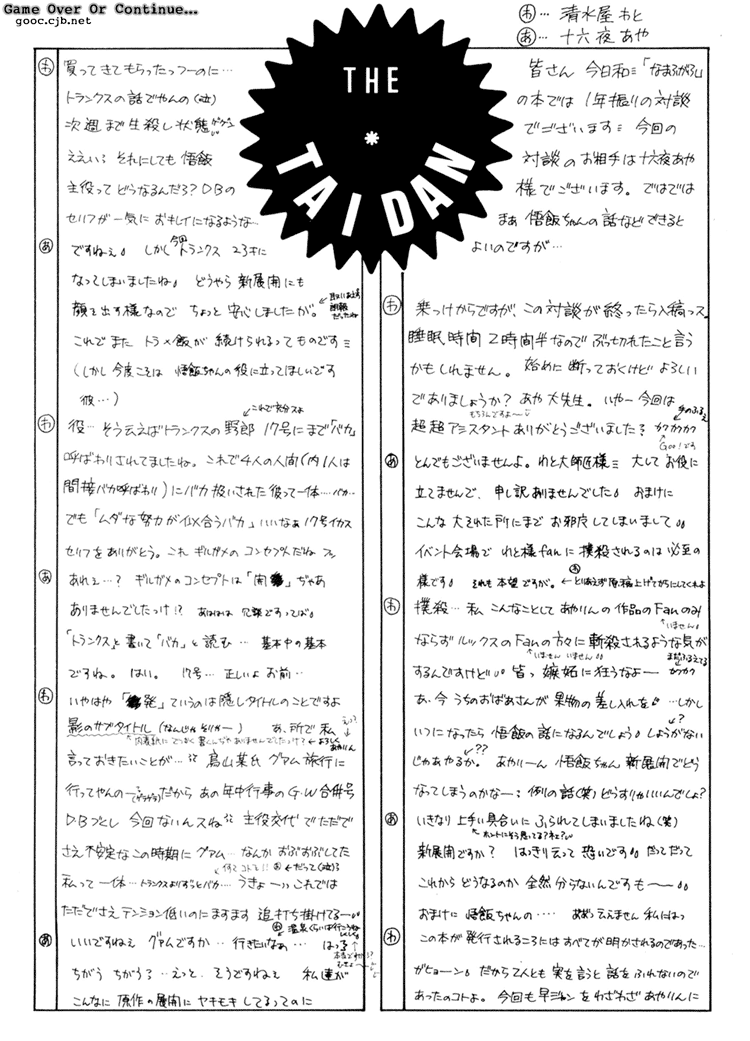 Game Over Or Continue...
gooc.cjb.net
わ… 清水屋 わと
あ… 十六夜 あや
THE
TAIDAN
皆さん 今日和 「なまるがろ」
の本では 1年振りの対談
でございます 今回の
対談のお相手は十六夜あや
様でございます。ではでは
まあ 悟飯ちゃんの話などできると
よいのですが…
わ
乗っけからですが、この対談が終ったら入稿っス
睡眠時間2時間半なので ぶっ切れたこと言う
かもしれません。始めに断っておくけど よろしい
でありましょうか? あや大先生。いやー 今回は
もちろんですよ〜
超超アシスタント ありがとうございました? カクカクカク
手のふるえ
あ
とんでもございませんよ。わと大師匠様 大してお役に
立てませんで、申し訳ありませんでした おまけに
こんな大それた所にまで お邪魔してしまいまして
イベント会場で わと様fanに撲殺されるのは必至の
様です それも本望ですが。←とりあえず原稿上げてからにしてくれよ
わ
撲殺… 私 こんなことして あやりんの作品のFanのみ
いません
ならずルックスのFanの方々に 斬殺されるような気が
いません いません
するんですけど 皆っ 嫉妬に狂うなよー カクカク
まだふるえてる
あ、今 うちのおばあさんが 果物の差し入れを …しかし
いつになったら 悟飯の話になるんでしょう しょうがない
??
じゃあやるか。 あやりーん 悟飯ちゃん 新展開でどう
なってしまうのかな—: 例の話(笑) どうすりゃいいんでしょ?
あ
いきなり 上手い具合いに ふられてしまいましたね(笑)
ホントにそう思ってる?ネェ?
新展開ですか? はっきり云って 恐いです だってだって
これから どうなるのか 全然 分らないんですも〜
おまけに 悟飯ちゃんの… ああっ云えません 私にはっ
わ
この本が発行されるころには すべてが明かされるのであった…
がヒョーン。だから 2人とも 実を言うと 話をふれないので
あったのコトよ。今回も早ジャンをわざわざ あやりんに
わ
買ってきてもらったっつーのに…
トランクスの話でやんの(泣)
次週まで生殺し状態
ええい それにしても 悟飯
主役って どうなるんだろ? DBの
セリフが一気に おキレイになるような…
あ
ですねぇ しかし 今回トランクス 23才に
なってしまいましたね どうやら 新展開にも
顔を出す様なので ちょっと 安心しましたが。
←取りあえず朗報だったね
これで また トラ×飯が 続けられるってものです
(しかし 今度こそは 悟飯ちゃんの役に立ってほしいです
彼…)
これで充分スよ
わ
役… そう云えばトランクスの野郎 17号にまで「バカ」
呼ばわりされてましたね。これで4人の人間(内1人は
間接バカ呼ばわり)にバカ扱いされた彼って一体…バカ…
でも「ムダな努力が似合うバカ」いいなぁ 17号イカス
セリフをありがとう。これ ギルガメの コンセプトだね
あ
あれェ…? ギルガメのコンセプトは「開
」ぢゃあ
ありませんでしたっけ!? あははは 冗談ですってば
「トランクス」と書いて「バカ」と読む… 基本中の基本
ですね。はい。 17号… 正しいよ お前…
わ
いやはや 「
発」ていうのは隠しタイトルのことですよ
影のサブタイトル(なんじゃそりゃー) あ、所で 私
内表紙にでっかく書くんぢゃありませんでしたっけ?←よろしくあやりん
言っておきたいことが… 鳥山某氏 グアム旅行に
行ってやんの… だから あの年中行事の G.W合併号
DBづくし 今回ないんスね 主役交代で ただで
さえ不安定なこの時期に グァム… なんか おぶおぶしてた
私って一体… トランクスよりずっとバカ… うきょーっ これでは
ただでさえ テンション低いのに ますます 追い打ち掛けてる—
温泉くらいは行こうね
あ
いいですねえ グァムですか… 行きたいなぁ… はっ
ちがう ちがう? …えっと、そうですねぇ 私達が
こんなに 原作の展開に ヤキモキしてるってのに